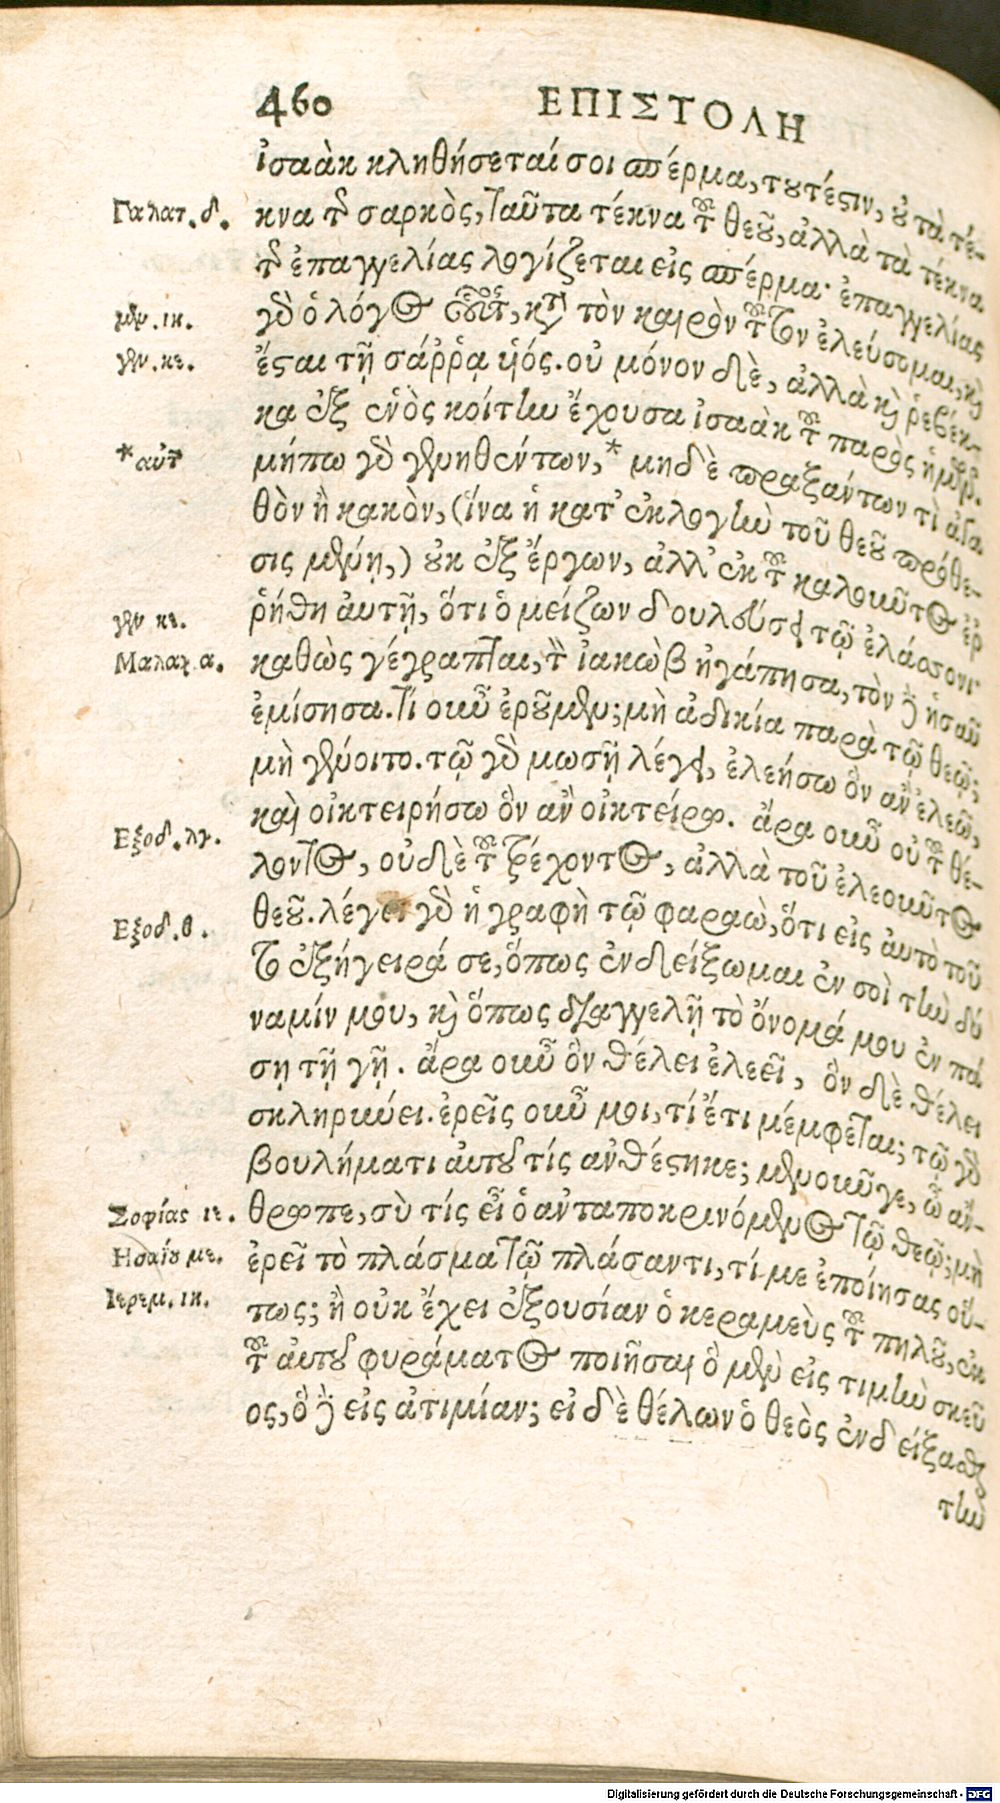 460 ΕΠΙΣΤΟΛΗ
ἰσαὰκ κληθήσεταί σοι σπέρμα, τουτέστιν, οὐ τὰ τέ-
Γαλατ. δ. κνα τῆς σαρκὸς, ταῦτα τέκνα τοῦ θεοῦ, ἀλλὰ τὰ τέκνα
τῆς ἐπαγγελίας λογίζεται εἰς σπέρμα· ἐπαγγελίας
γὰρ ὁ λόγος οὗτος, κατὰ τὸν καιρὸν τοῦτον ἐλεύσομαι, καὶ
γεν. ιη.
γεν. κε. ἔσται τῇ σάῤῥᾳ υἱός. οὐ μόνον δὲ, ἀλλὰ καὶ ῥεβέκ-
κα ἐξ ἑνὸς κοίτην ἔχουσα ἰσαὰκ τοῦ πατρὸς ἡμῶν.
*αὐτῶν μήπω γὰρ γεννηθέντων,* μηδὲ πραξάντων τὶ ἀγα
θὸν ἢ κακὸν, (ἵνα ἡ κατ' ἐκλογὴν τοῦ θεοῦ πρόθε-
σις μένῃ,) οὐκ ἐξ ἔργων, ἀλλ' ἐκ τοῦ καλοῦντος ἐρ
γεν κε. ῥήθη ἀυτῇ, ὅτι ὁ μείζων δουλεύσει τῷ ἐλάσσονι·
Μαλαχ α. καθὼς γέγραπται, τὸν ἰακὼβ ἠγάπησα, τὸν δὲ ἡσαῦ
ἐμίσησα. τί οὖν ἐροῦμεν; μὴ ἀδικία παρὰ τῷ θεῷ;
μὴ γένοιτο. τῷ γὰρ μωσῇ λέγει, ἐλεήσω ὃν ἂν ἐλεῶ,
Εξοδ. λγ. καὶ οἰκτειρήσω ὃν ἂν οἰκτείρω. ἄρα οὖν οὐ τοῦ θέ-
λοντος, οὐδὲ τοῦ τρέχοντος, ἀλλὰ τοῦ ἐλεοῦντος
Εξοδ. θ. θεοῦ. λέγει γὰρ ἡ γραφὴ τῷ φαραὼ, ὅτι εἰς ἀυτὸ τοῦ
το ἐξήγειρά σε, ὅπως ἐνδείξωμαι ἐν σοὶ τὴν δύ
ναμίν μου, καὶ ὅπως διαγγελῇ τὸ ὄνομά μου ἐν πά
σῃ τῇ γῇ. ἄρα οὖν ὃν θέλει ἐλεεῖ, ὃν δὲ θέλει
σκληρύνει. ἐρεῖς οὖν μοι, τί ἔτι μέμφεται; τῷ γὰρ
βουλήματι ἀυτοῦ τίς ἀνθέστηκε; μενοῦνγε, ὦ ἄν-
Σοφίας ιε. θρωπε, σὺ τίς εἶ ὁ ἀνταποκρινόμενος τῷ θεῷ; μὴ
Ησαΐου με. ἐρεῖ τὸ πλάσμα τῷ πλάσαντι, τί με ἐποίησας οὕ-
Ιερεμ. ιη. τως; ἢ οὐκ ἔχει ἐξουσίαν ὁ κεραμεὺς τοῦ πηλοῦ, ἐκ
τοῦ ἀυτοῦ φυράματος ποιῆσαι ὃ μὲν εἰς τιμὴν σκεῦ
ος, ὃ δὲ εἰς ἀτιμίαν; εἰ δὲ θέλων ὁ θεὸς ἐνδείξασθαι
τὴν
Digitalisierung gefördert durch die Deutsche Forschungsgemeinschaft - DFG